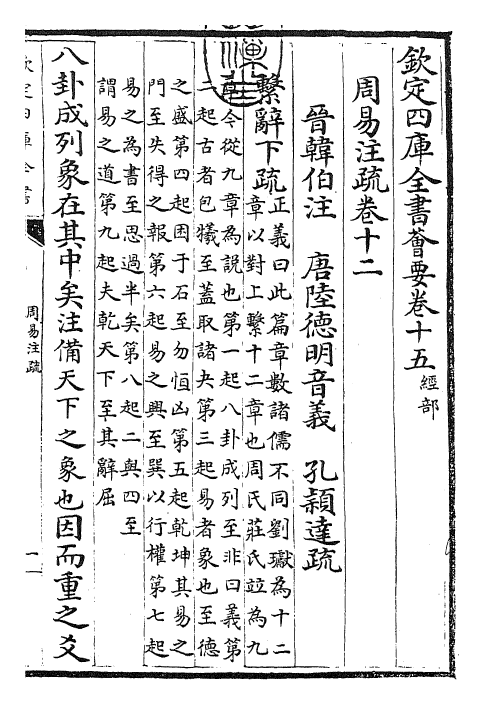 欽定四庫全書薈要卷十五 經部
周易注疏卷十二
晉韓伯注 唐陸德明音義 孔穎達疏
繫辭下疏 正義曰此篇章數諸儒不同劉瓛為十二
章以對上繫十二章也周氏莊氏竝為九
章今從九章為說也第一起八卦成列至非曰義第
二起古者包犧至蓋取諸夬第三起易者象也至德
之盛第四起困于石至勿恒凶第五起乾坤其易之
門至失得之報第六起易之興至巽以行權第七起
易之為書至思過半矣第八起二與四至
謂易之道第九起夫乾天下至其辭屈
八卦成列象在其中矣注備天下之象也因而重之爻
欽定四庫全書
周易注疏
一